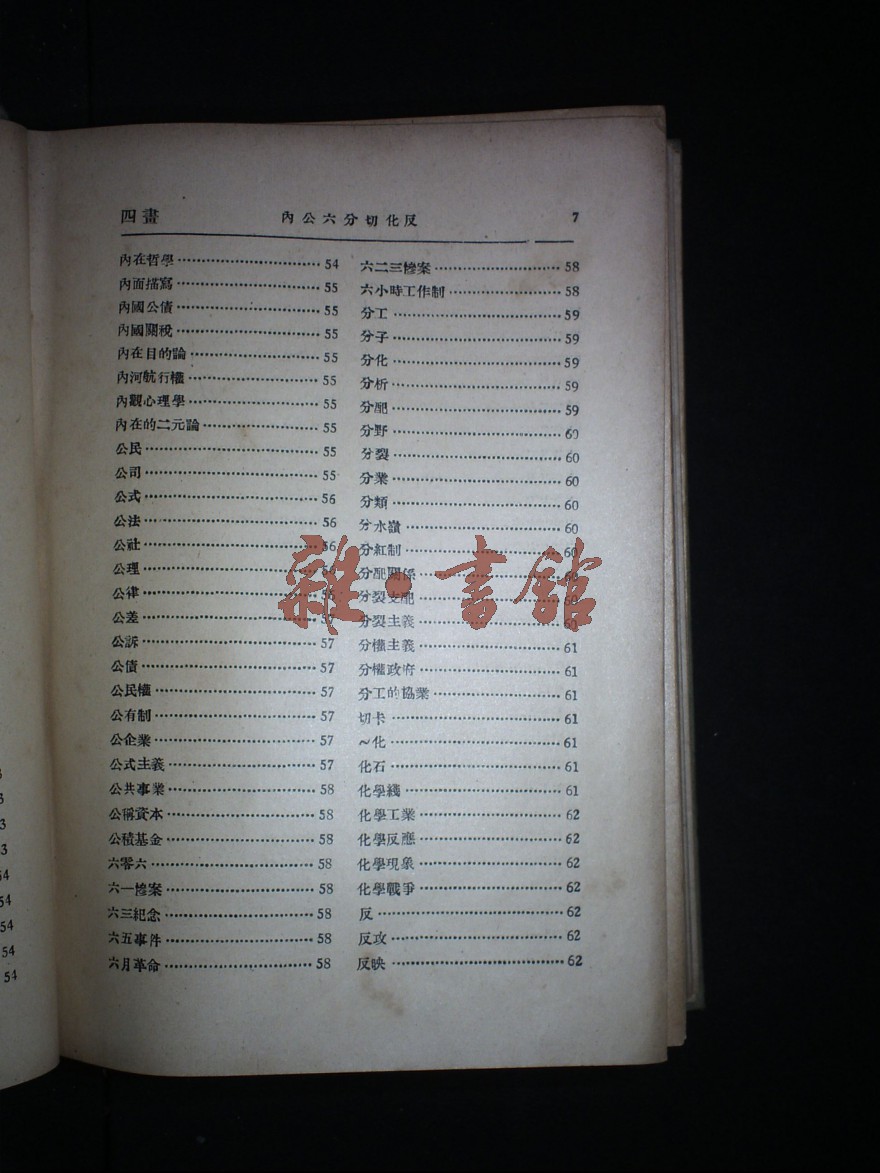 四畫 內公六分切化反 7
內在哲學 54
內面描寫 55
內國公債 55
內國關稅 55
內在目的論 55
內河航行權 55
內觀心理學 55
內在的二元論 55
公民 55
公司 55
公式 56
公法 56
公社 56
公理
公律
公差 57
公訴 57
公債 57
公民權 57
公有制 57
公企業 57
公式主義 57
公共事業 58
公稱資本 58
公積基金 58
六零六 58
六一慘案 58
六三紀念 58
六五事件 58
六月革命 58
六二三慘案 58
六小時工作制 58
分工 59
分子 59
分化 59
分析 59
分配 59
分野 60
分裂 60
分業 60
分類 60
分水嶺 60
分紅制 60
分配關係
分裂支配
分裂主義
分權主義 61
分權政府 61
分工的協業 61
切卡 61
～化 61
化石 61
化學綫 61
化學工業 62
化學反應 62
化學現象 62
化學戰爭 62
反 62
反攻 62
反映 62
雜·書館
3
3
3
3
54
54
54
54
54